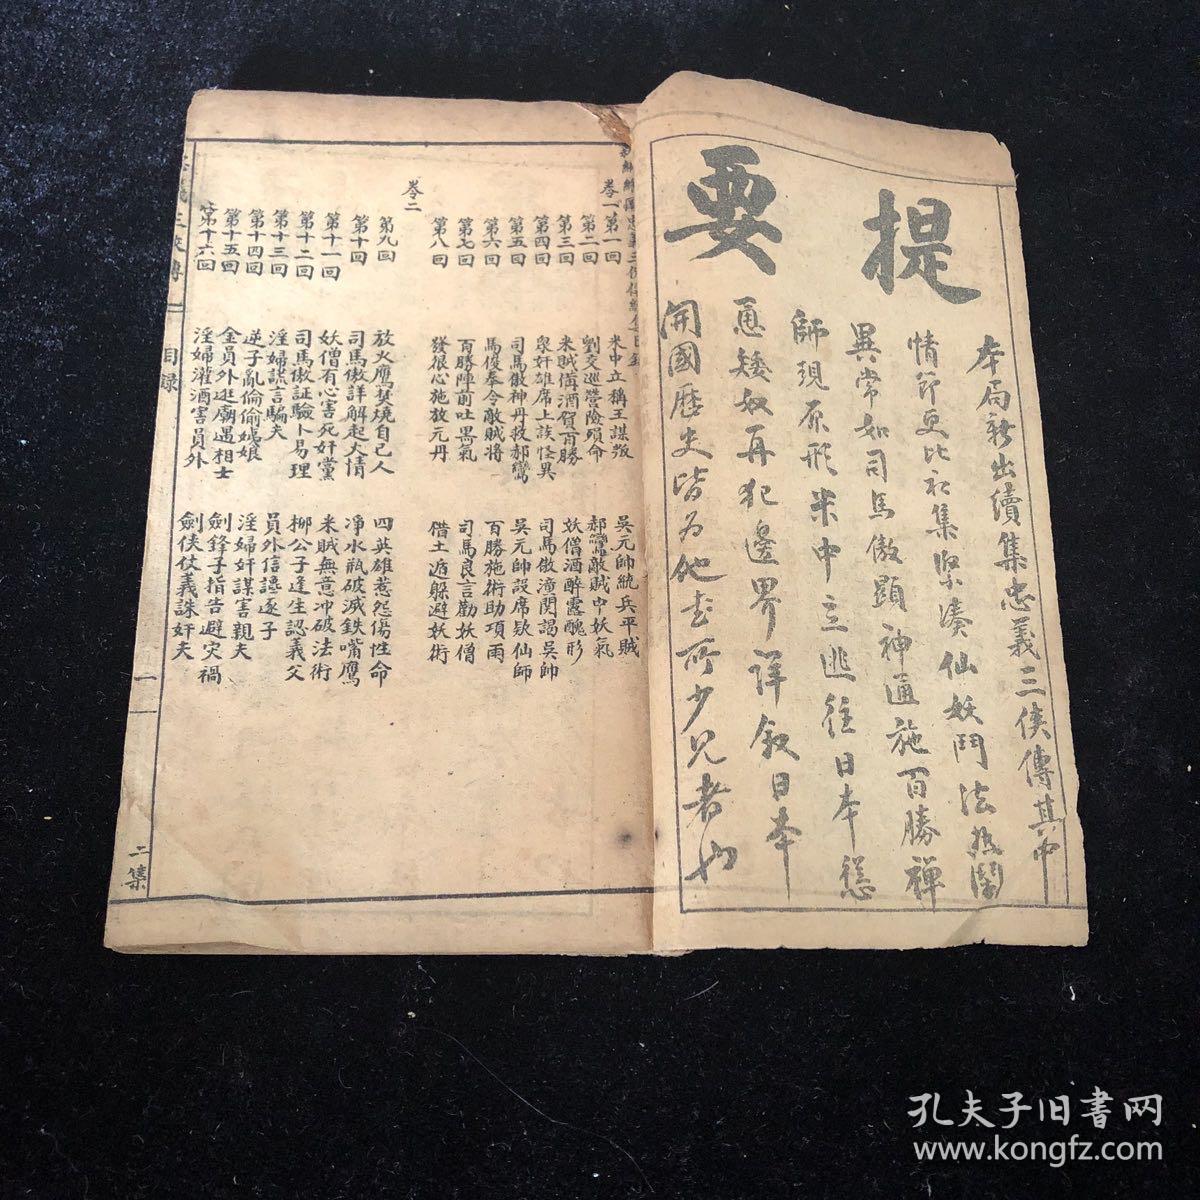 提要
本局新出續集忠義三俠傳其中
情節更比初集緊湊仙妖鬥法熱鬧
異常如司馬傲顯神通施百勝禪
師現原形米中立逃往日本慫
恿矮奴再犯邊界詳敘日本
開國歷史皆為他書所少見者也
卷一
第一回 米中立稱王謀叛 吳元帥統兵平賊
第二回 劉交巡營險殞命 郝鸞敵賊中妖氣
第三回 米賊備酒賀百勝 妖僧酒醉露醜形
第四回 衆奸雄席上談怪異 司馬傲潼関謁吳帥
第五回 司馬傲神丹救郝鸞 吳元帥設席欵仙師
第六回 馬俊奉令敵賊將 百勝施術助項雨
第七回 百勝陣前吐黑氣 司馬良言勸妖僧
第八回 發狠心施放元丹 借土遁躲避妖術
卷二
第九回 放火鷹焚燒自己人 四英雄惹怨傷性命
第十回 司馬傲詳解起火情 凈水瓶破滅鉄嘴鷹
第十一回 妖僧有心害死奸黨 米賊無意冲破法術
第十二回 司馬傲証驗卜易理 柳公子逢生認義父
第十三回 淫婦謊言騙夫 員外信讒逐子
第十四回 逆子亂倫偷娘 淫婦奸謀害親夫
第十五回 全員外逛廟遇相士 劍鋒子指告避灾禍
第十六回 淫婦灌酒害員外 劍俠仗義誅奸夫
目録
一
二集
孔夫子旧書网
www.kongfz.com